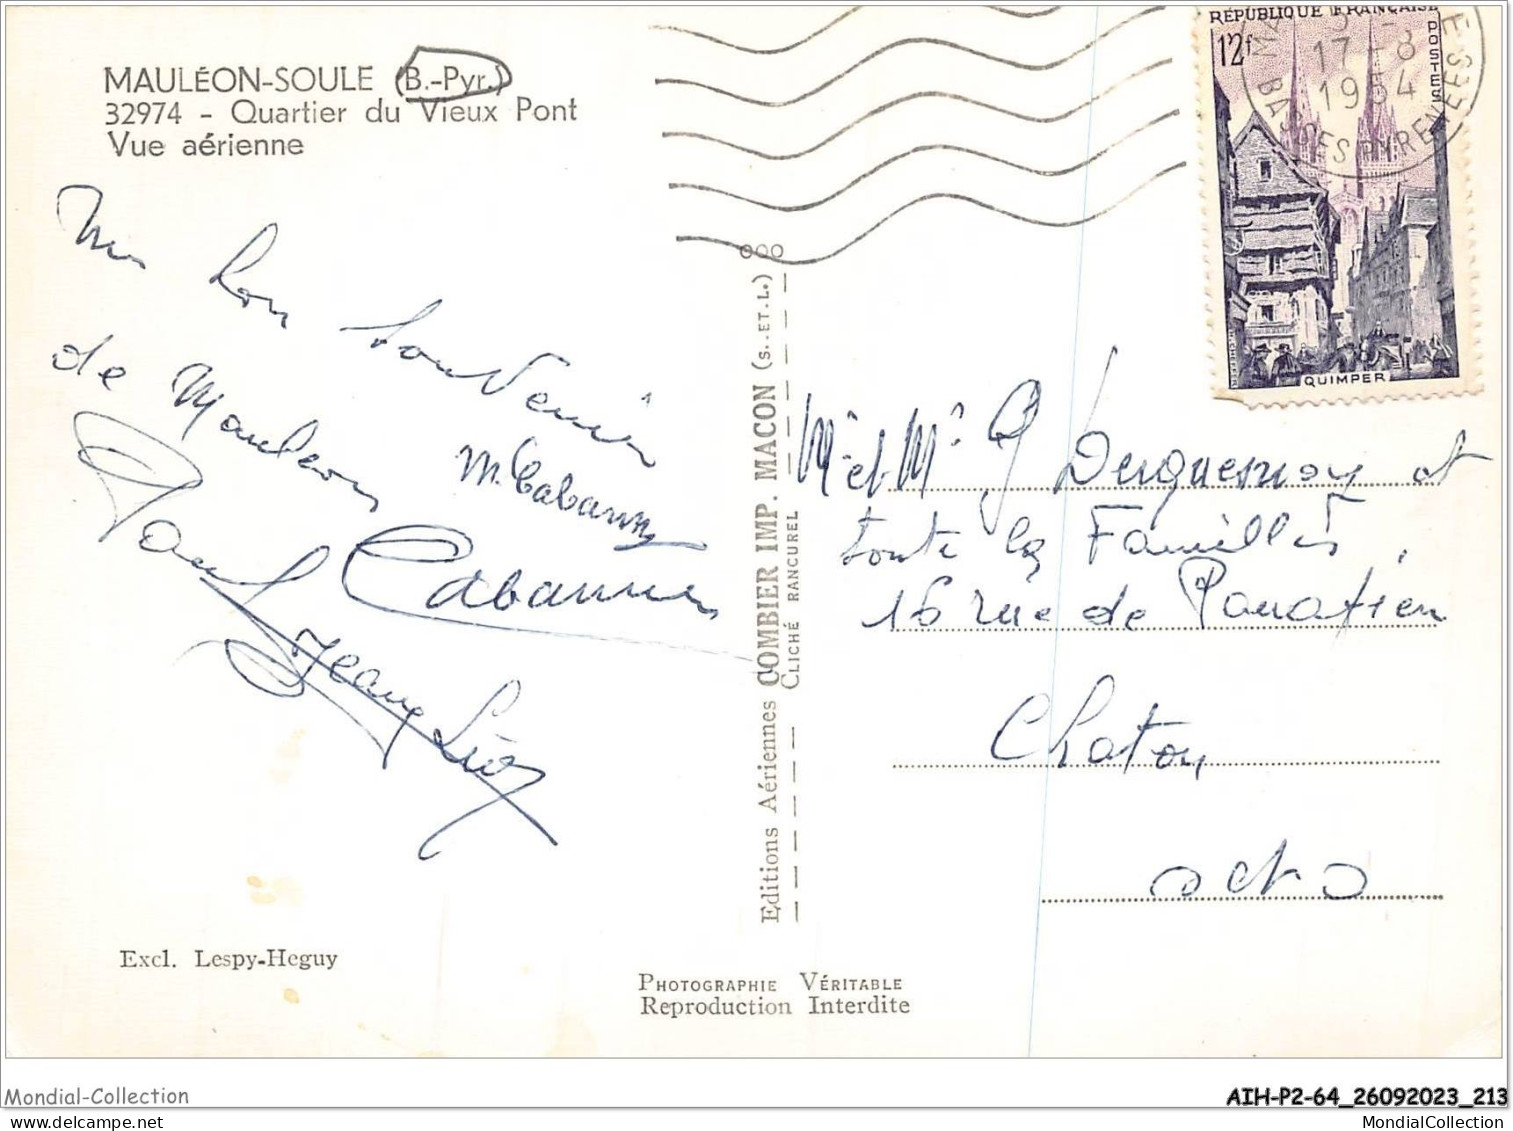 MAULÉON-SOULE (B.-Pyr.)
32974 - Quartier du Vieux Pont
Vue aérienne
RÉPUBLIQUE FRANÇAISE
12f
POSTES
17-8
1954
BASSES PYRENEES
QUIMPER
Un bon souvenir
de Mauléon
M. Cabannes
Paul Cabannes
Jeanne
Editions Aériennes COMBIER IMP. MACON (S.-ET-L.)
CLICHÉ RANCUREL
Mr et Me G Duquesnoy et
toute la Famille
16 rue de
Chatou
S et O
Excl. Lespy-Heguy
PHOTOGRAPHIE VÉRITABLE
Reproduction Interdite
Mondial-Collection
AIH-P2-64_26092023_213
MondialCollection